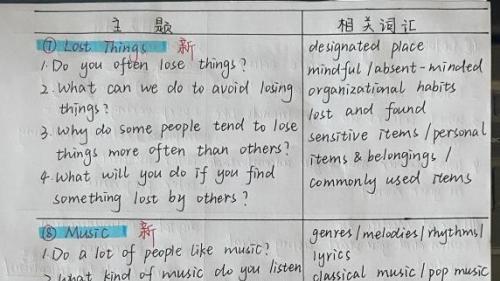 主 题
相关词汇
⑦ Lost Things 新
1. Do you often lose things?
2. What can we do to avoid losing
things?
3. Why do some people tend to lose
things more often than others?
4. What will you do if you find
something lost by others?
designated place
mindful / absent-minded
organizational habits
lost and found
sensitive items / personal
items & belongings /
commonly used items
⑧ Music 新
1. Do a lot of people like music?
2. What kind of music do you listen
genres / melodies / rhythms /
lyrics
classical music / pop music